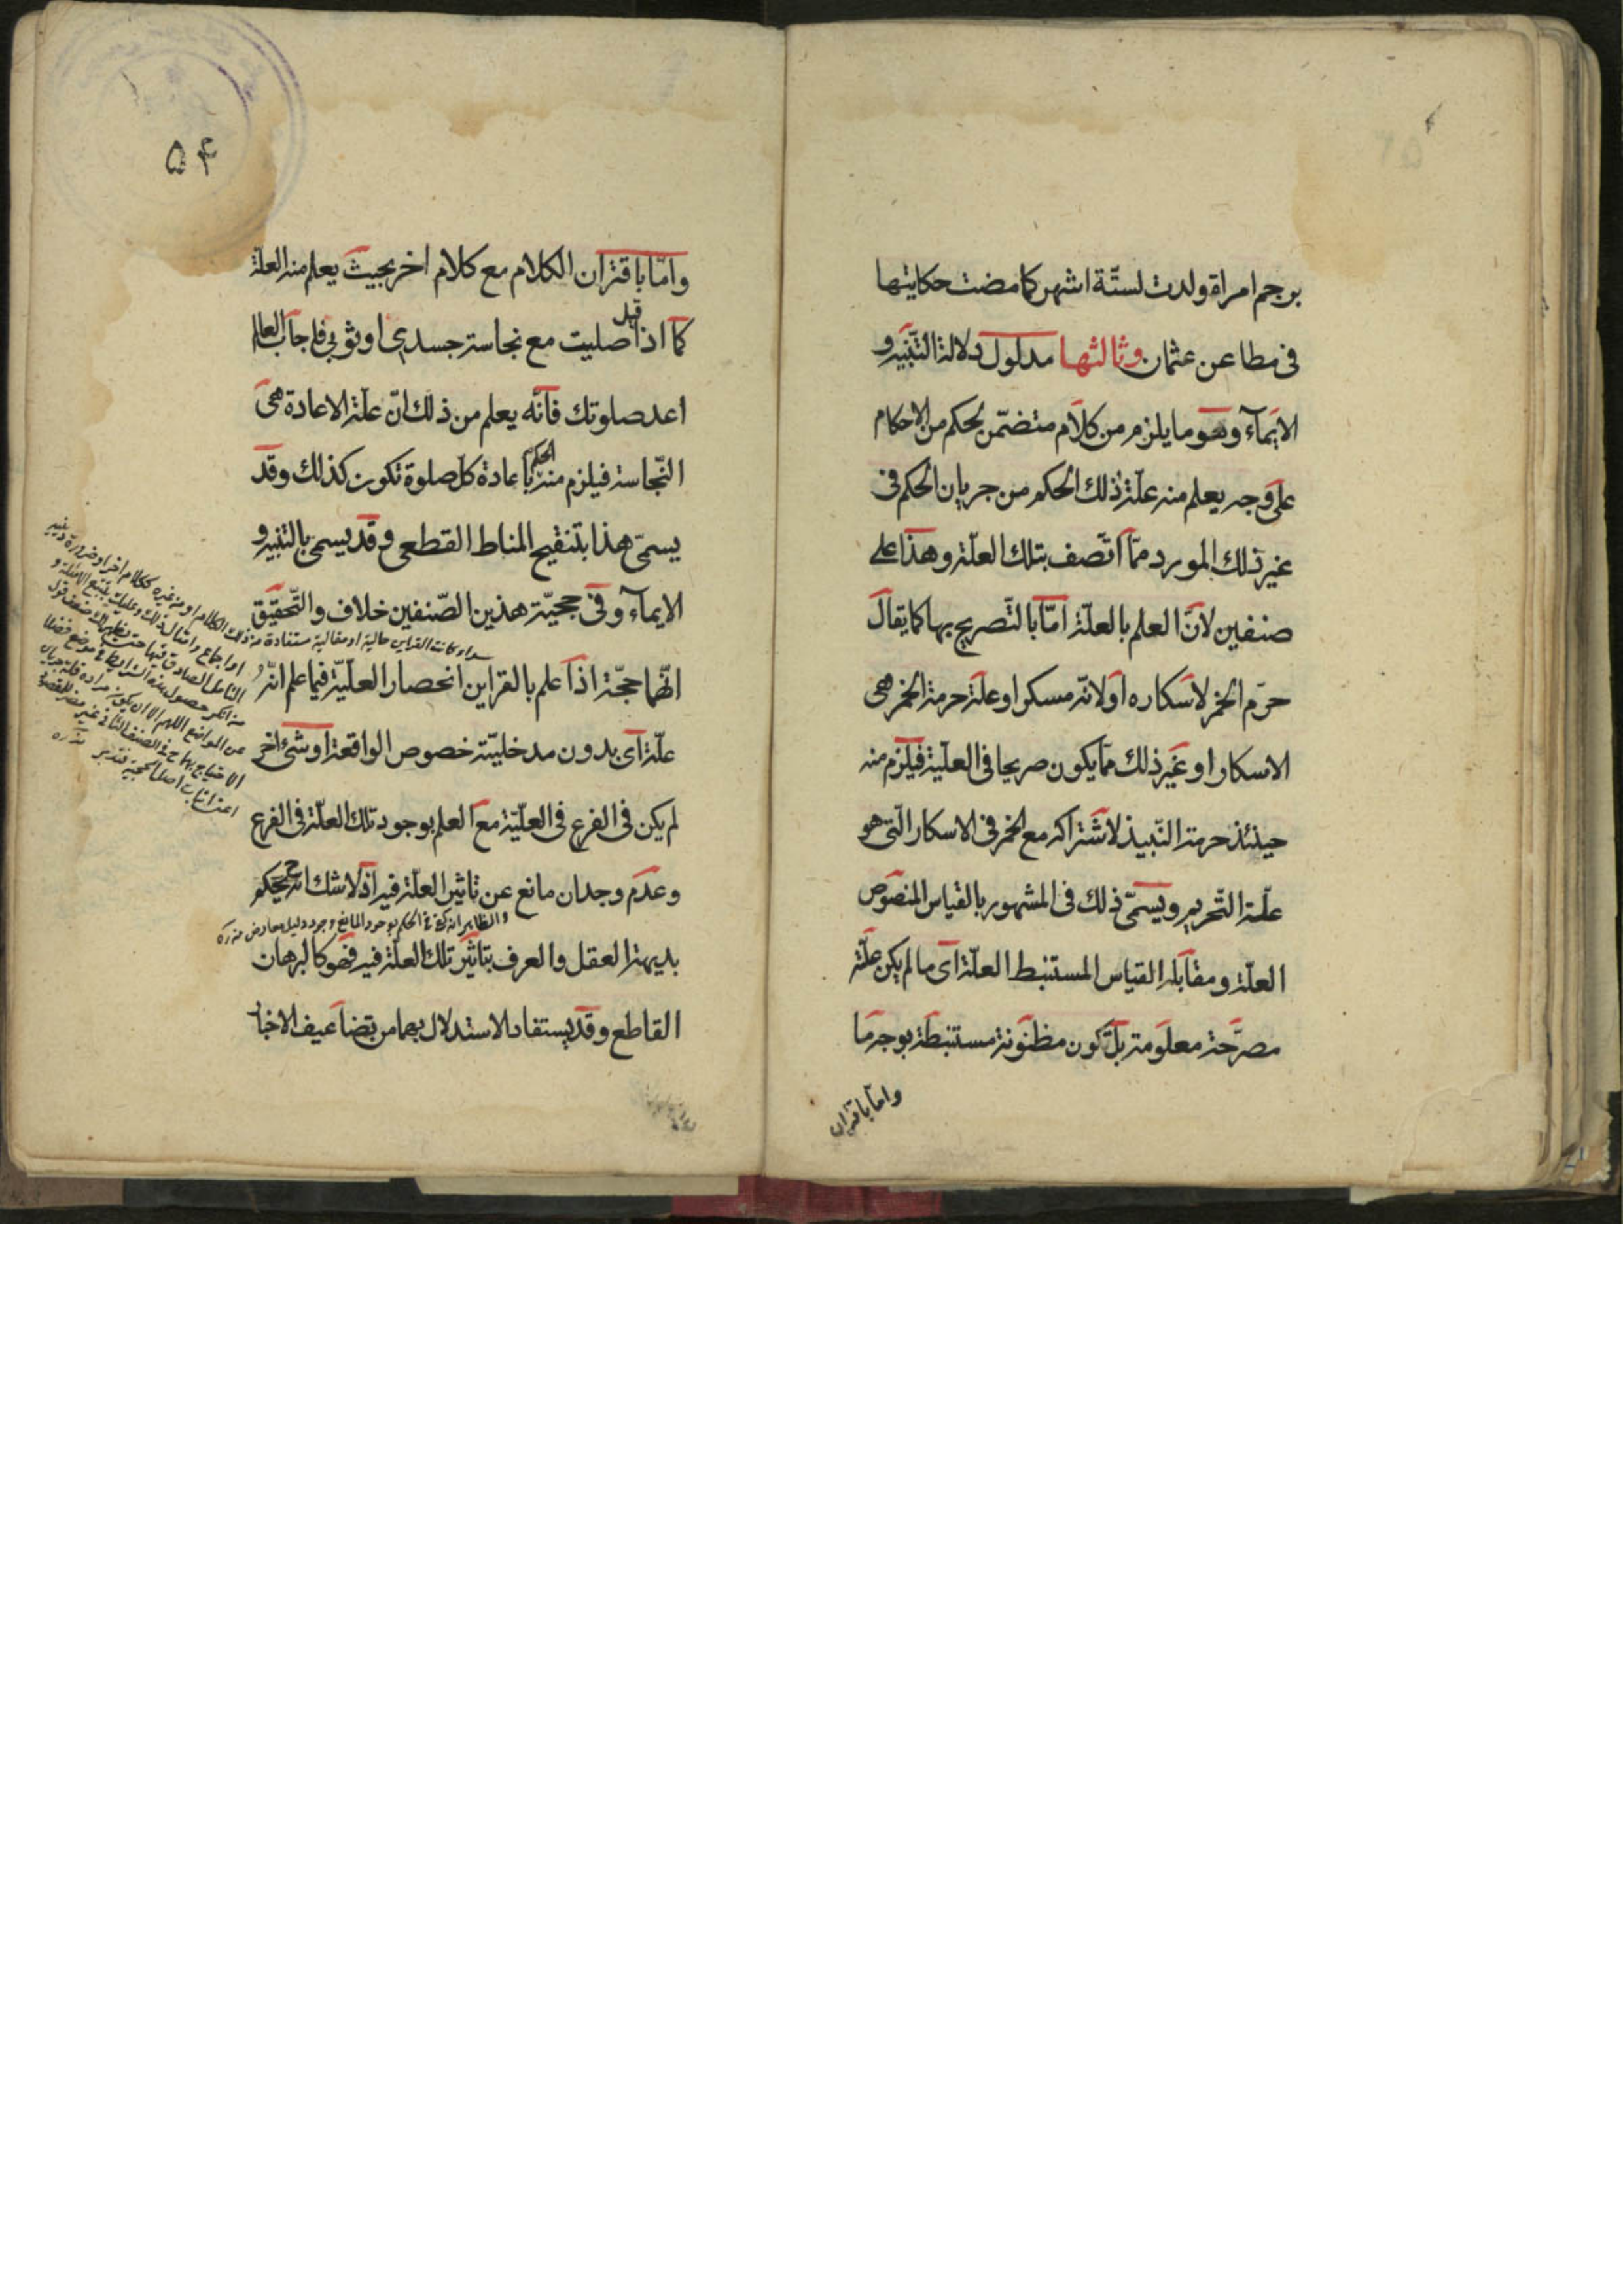 برجم امراة ولدت لستّة اشهر كما مضت حكايتها
فى مطاعن عثمان وثالثها مدلول دلالة التّنبيه و
الايمآء وهو ما يلزم من كلام متضمّن لحكم من الاحكام
على وجه يعلم منه علّة ذلك الحكم من جريان الحكم فى
غير ذلك المورد ممّا اتّصف بتلك العلّة وهذا على
صنفين لانّ العلم بالعلّة امّا بالتّصريح بها كما يقال
حرّم الخمر لاسكاره او لانّه مسكر او علّة حرمة الخمر هى
الاسكار او غير ذلك ممّا يكون صريحا فى العلّية فيلزم منه
حينئذ حرمة النّبيذ لاشتراكه مع الخمر فى الاسكار الّتى هو
علّة التّحريم ويسمّى ذلك فى المشهور بالقياس المنصوص
العلّة ومقابله القياس المستنبط العلّة اى ما لم يكن علّته
مصرّحة معلومة بل تكون مظنونة مستنبطة بوجه ما
وامّا باقتران
۵۴
وامّا باقتران الكلام مع كلام اخر بحيث يعلم منه العلّة
كما اذا قيل صليت مع نجاسة جسدى او ثوبى فاجاب العالم
اعد صلوتك فانّه يعلم من ذلك انّ علّة الاعادة هى
النّجاسة فيلزم منه الحكم باعادة كلّ صلوة تكون كذلك وقد
يسمّى هذا بتنقيح المناط القطعى وقد يسمّى بالتنبيه و
الايمآء وفى حجيّة هذين الصّنفين خلاف والتّحقيق
سواء كانت القراين حالية او مقالية مستفادة من ذلك الكلام او من غيره ككلام اخر او ضرورة دين
او اجماع وامثال ذلك وعليك بتتبع الامثلة و
حتى يظهر لك ضعف قول
من انكر حصول هذه الشرايط فى موضع فضلا
عن المواضع اللهم الا ان يكون مراده قلة جريان
الاحتياج بها فى الصنف الثانى غير مضر للمقصود
اعنى اثبات اصل الحجية فتدبر منه ره
انّهما حجّة اذا علم بالقراين انحصار العلّيّة فيما علم انّه
علّة اى بدون مدخليّة خصوص الواقعة او شئ اخر
لم يكن فى الفرع فى العلّيّة مع العلم بوجود تلك العلّة فى الفرع
وعدم وجدان مانع عن تاثير العلّة فيه اذ لا شك انّه ح يحكم
والظاهر انه الحكم بوجود المانع وجود دليل معارض منه ره
بديهة العقل والعرف بتاثير تلك العلّة فيه فهو كالبرهان
القاطع وقد يستفاد الاستدلال بهما من تضاعيف الاخبار